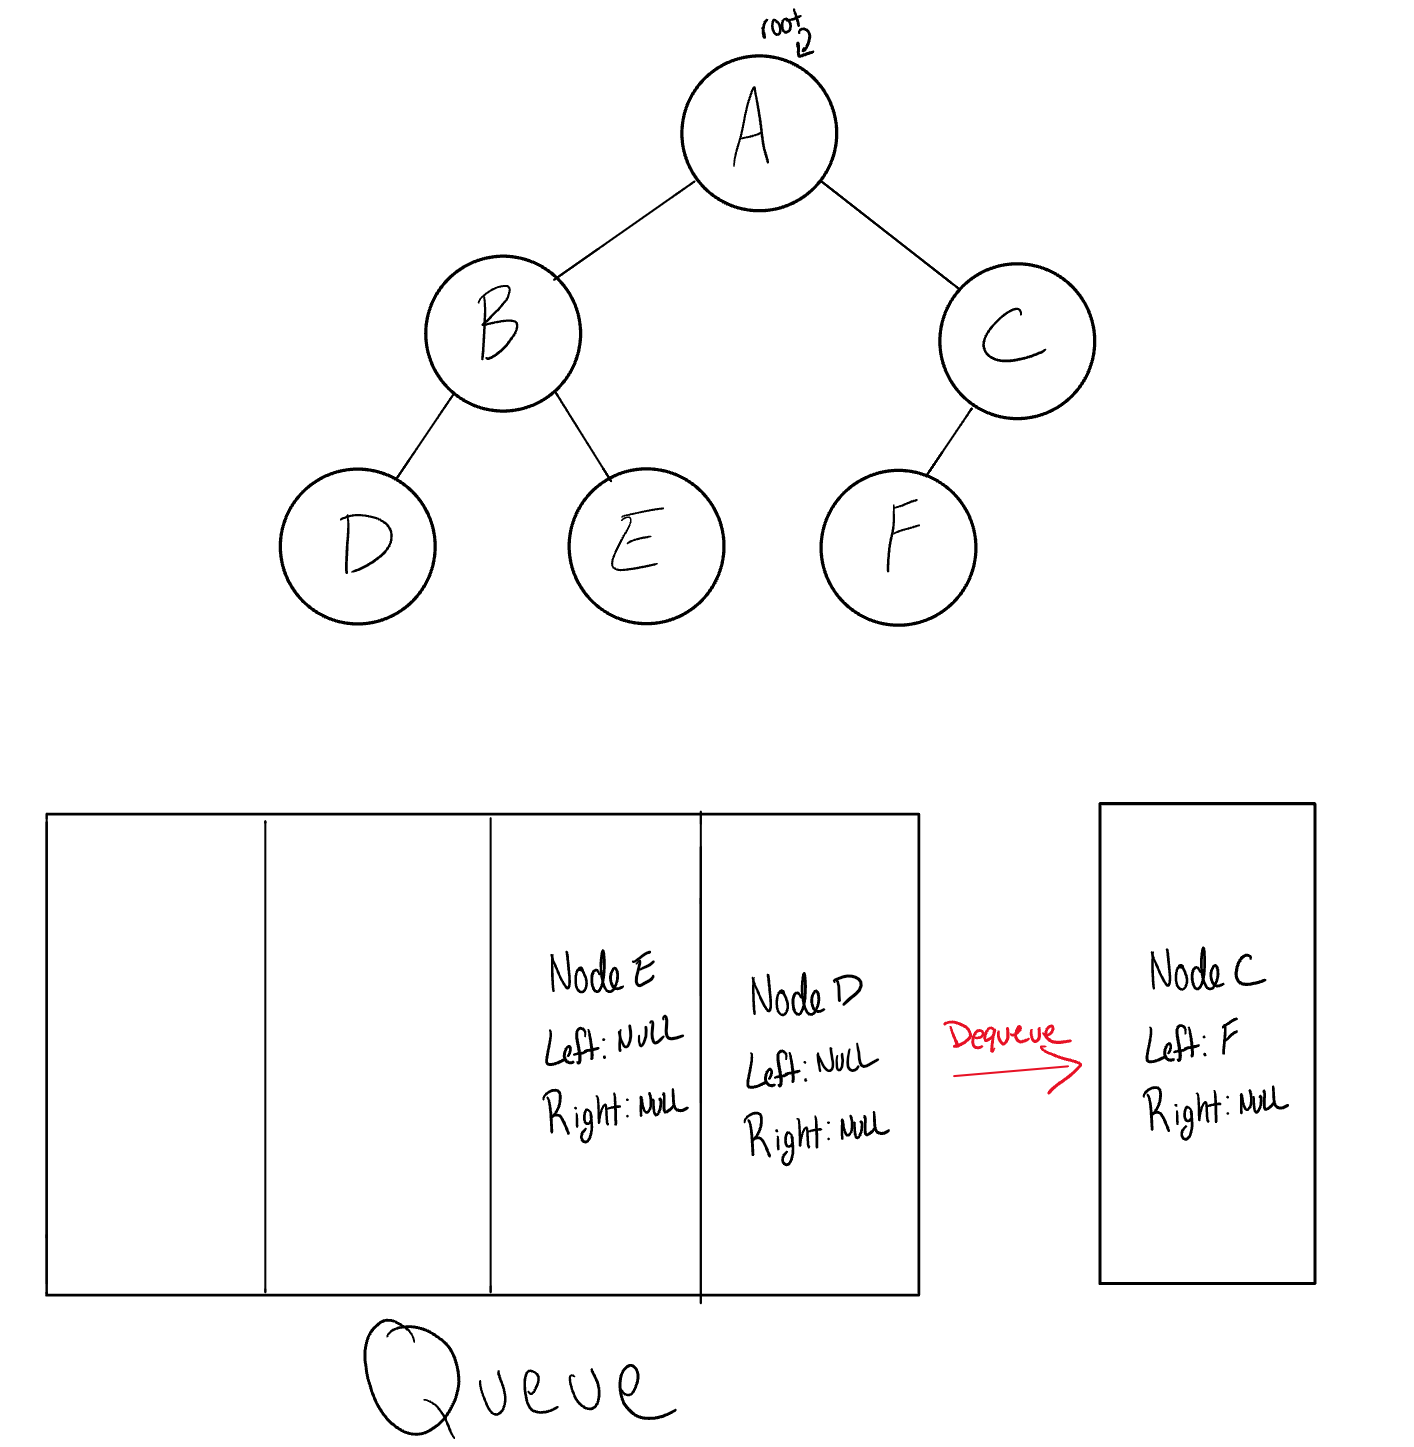 root
A
B
C
D
E
F
Node E
Left: NULL
Right: NULL
Node D
Left: NULL
Right: NULL
Dequeue
Node C
Left: F
Right: NULL
Queue